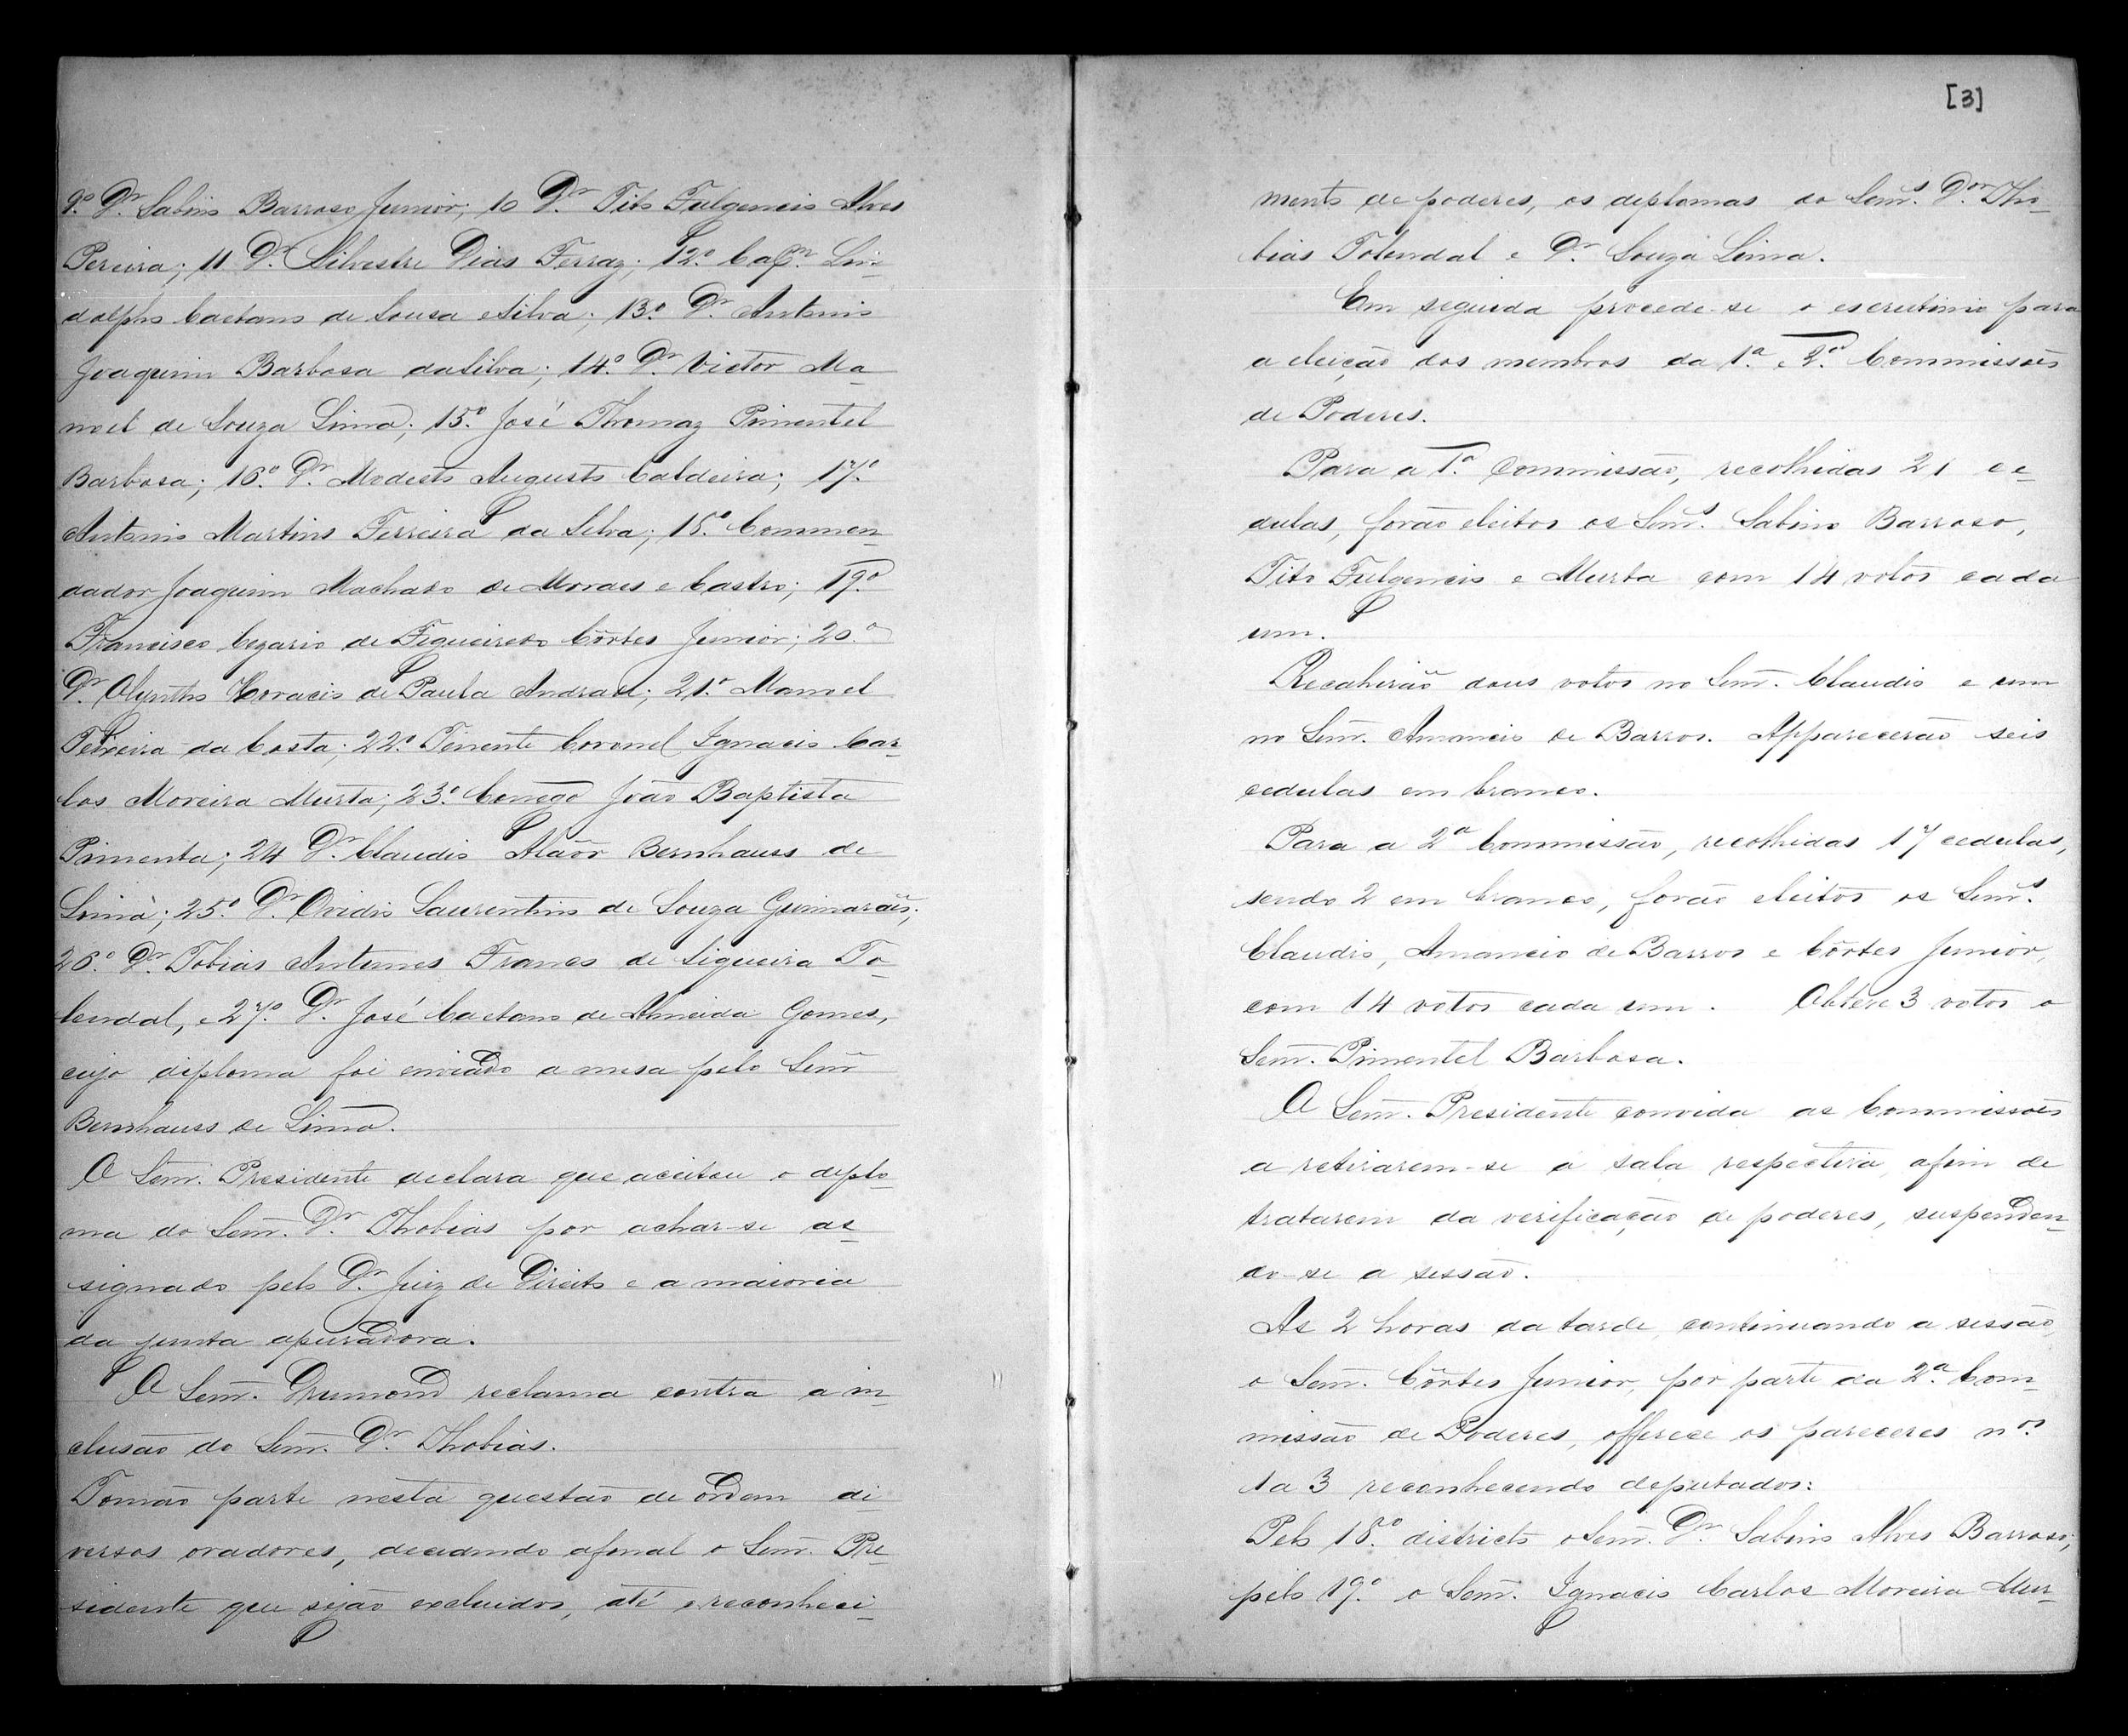 9.º Dr. Sabino Barroso Junior; 10 Dr. Tito Fulgencio Alves
Pereira; 11 Dr. Silvestre Dias Ferraz; 12.º Capm. Lin-
dolpho Caetano de Sousa e Silva; 13.º Dr. Antonio
Joaquim Barbosa da Silva; 14.º Dr. Victor Ma-
noel de Souza Lima; 15.º José Thomaz Pimentel
Barbosa; 16.º Dr. Modesto Augusto Caldeira; 17.º
Antonio Martins Ferreira da Silva; 18.º Commen-
dador Joaquim Machado de Moraes e Castro; 19.º
Francisco Cezario de Figueiredo Côrtes Junior; 20.º
Dr. Olyntho Horacio de Paula Andrade; 21.º Manoel
Teixeira da Costa; 22.º Tenente Coronel Ignacio Car-
los Moreira Murta; 23.º Conego João Baptista
Pimenta; 24 Dr. Claudio Alaôr Bernhauss de
Lima; 25.º Dr. Ovidio Laurentino de Souza Guimarães;
26.º Dr. Tobias Antunes Franco de Siqueira To-
lendal, e 27.º Dr. José Caetano de Almeida Gomes,
cujo diploma foi enviado a mesa pelo Senr
Bernhauss de Lima.
O Senr. Presidente declara que aceitou o diplo-
ma do Senr. Dr. Thobias por achar-se as-
signado pelo Dr. Juiz de Direito e a maioria
da junta apuradora.
O Senr. Drumond reclama contra a in-
clusão do Senr. Dr. Thobias.
Tomão parte nesta questão de ordem di
versos oradores, decidindo afinal o Senr. Pre-
sidente que sejão excluidos, até o reconheci-
[3]
mento de poderes, os diplomas do Senrs. Dor. Tho-
bias Tolendal e Dr. Souza Lima.
Em seguida procede-se o escrutinio para
a eleição dos membros da 1.ª e 2.ª Commissões
de Poderes.
Para a 1.ª Commissão, recolhidas 21 ce-
dulas, forão eleitos os Senrs. Sabino Barroso,
Tito Fulgencio e Murta com 14 votos cada
um.
Recahirão dous votos no Senr. Claudio e um
no Senr. Amancio de Barros. Apparecerão seis
cedulas em branco.
Para a 2ª Commissão, recolhidas 17 cedulas,
sendo 2 em branco, forão eleitos os Senrs.
Claudio, Amancio de Barros e Côrtes Junior,
com 14 votos cada um. Obteve 3 votos o
Senr. Pimentel Barbosa.
O Senr. Presidente convida as Commissões
a retirarem-se a sala respectiva, afim de
tratarem da verificação de poderes, suspenden-
do-se a sessão.
As 2 horas da tarde, continuando a sessão,
o Senr. Côrtes Junior, por parte da 2.ª Com-
missão de Poderes, offerece os pareceres nos.
1 a 3 reconhecendo deputados:
Pelo 18.º districto o Senr. Dr. Sabino Alves Barroso;
pelo 19.º o Senr. Ignacio Carlos Moreira Mur-